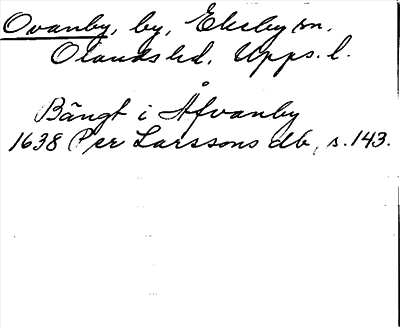 Ovanby, by, Ekeby sn,
Olands hd, Upps. l.
Bängt i Åfvanby
1638 Per Larssons db, s. 143.